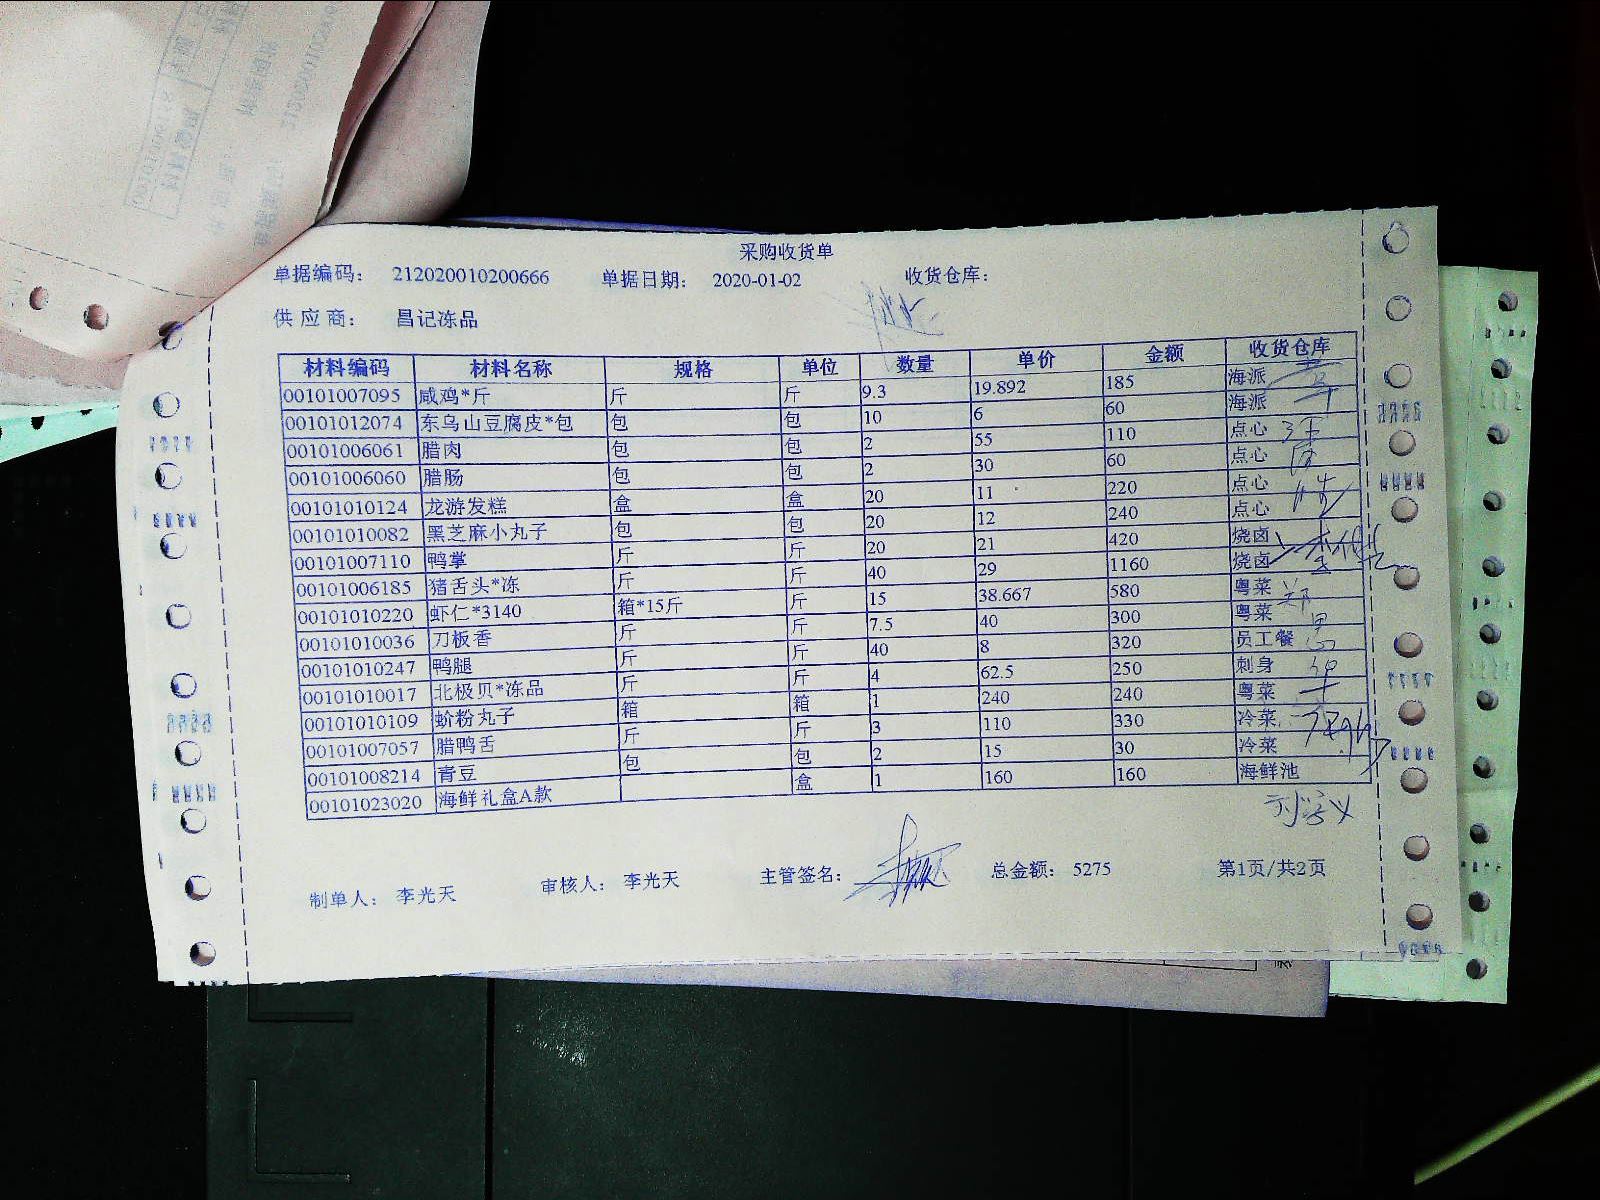 采购收货单
单据编码： 212020010200666 单据日期： 2020-01-02 收货仓库：
供 应 商： 昌记冻品
材料编码 材料名称 规格 单位 数量 单价 金额 收货仓库
00101007095 咸鸡*斤 斤 斤 9.3 19.892 185 海派
00101012074 东乌山豆腐皮*包 包 包 10 6 60 海派
00101006061 腊肉 包 包 2 55 110 点心
00101006060 腊肠 包 包 2 30 60 点心
00101010124 龙游发糕 盒 盒 20 11 220 点心
00101010082 黑芝麻小丸子 包 包 20 12 240 点心
00101007110 鸭掌 斤 斤 20 21 420 烧卤
00101006185 猪舌头*冻 斤 斤 40 29 1160 烧卤
00101010220 虾仁*3140 箱*15斤 斤 15 38.667 580 粤菜
00101010036 刀板香 斤 斤 7.5 40 300 粤菜
00101010247 鸭腿 斤 斤 40 8 320 员工餐
00101010017 北极贝*冻品 斤 斤 4 62.5 250 刺身
00101010109 蚧粉丸子 箱 箱 1 240 240 粤菜
00101007057 腊鸭舌 斤 斤 3 110 330 冷菜
00101008214 青豆 包 包 2 15 30 冷菜
00101023020 海鲜礼盒A款 盒 1 160 160 海鲜池
制单人： 李光天 审核人： 李光天 主管签名： 总金额： 5275 第1页/共2页